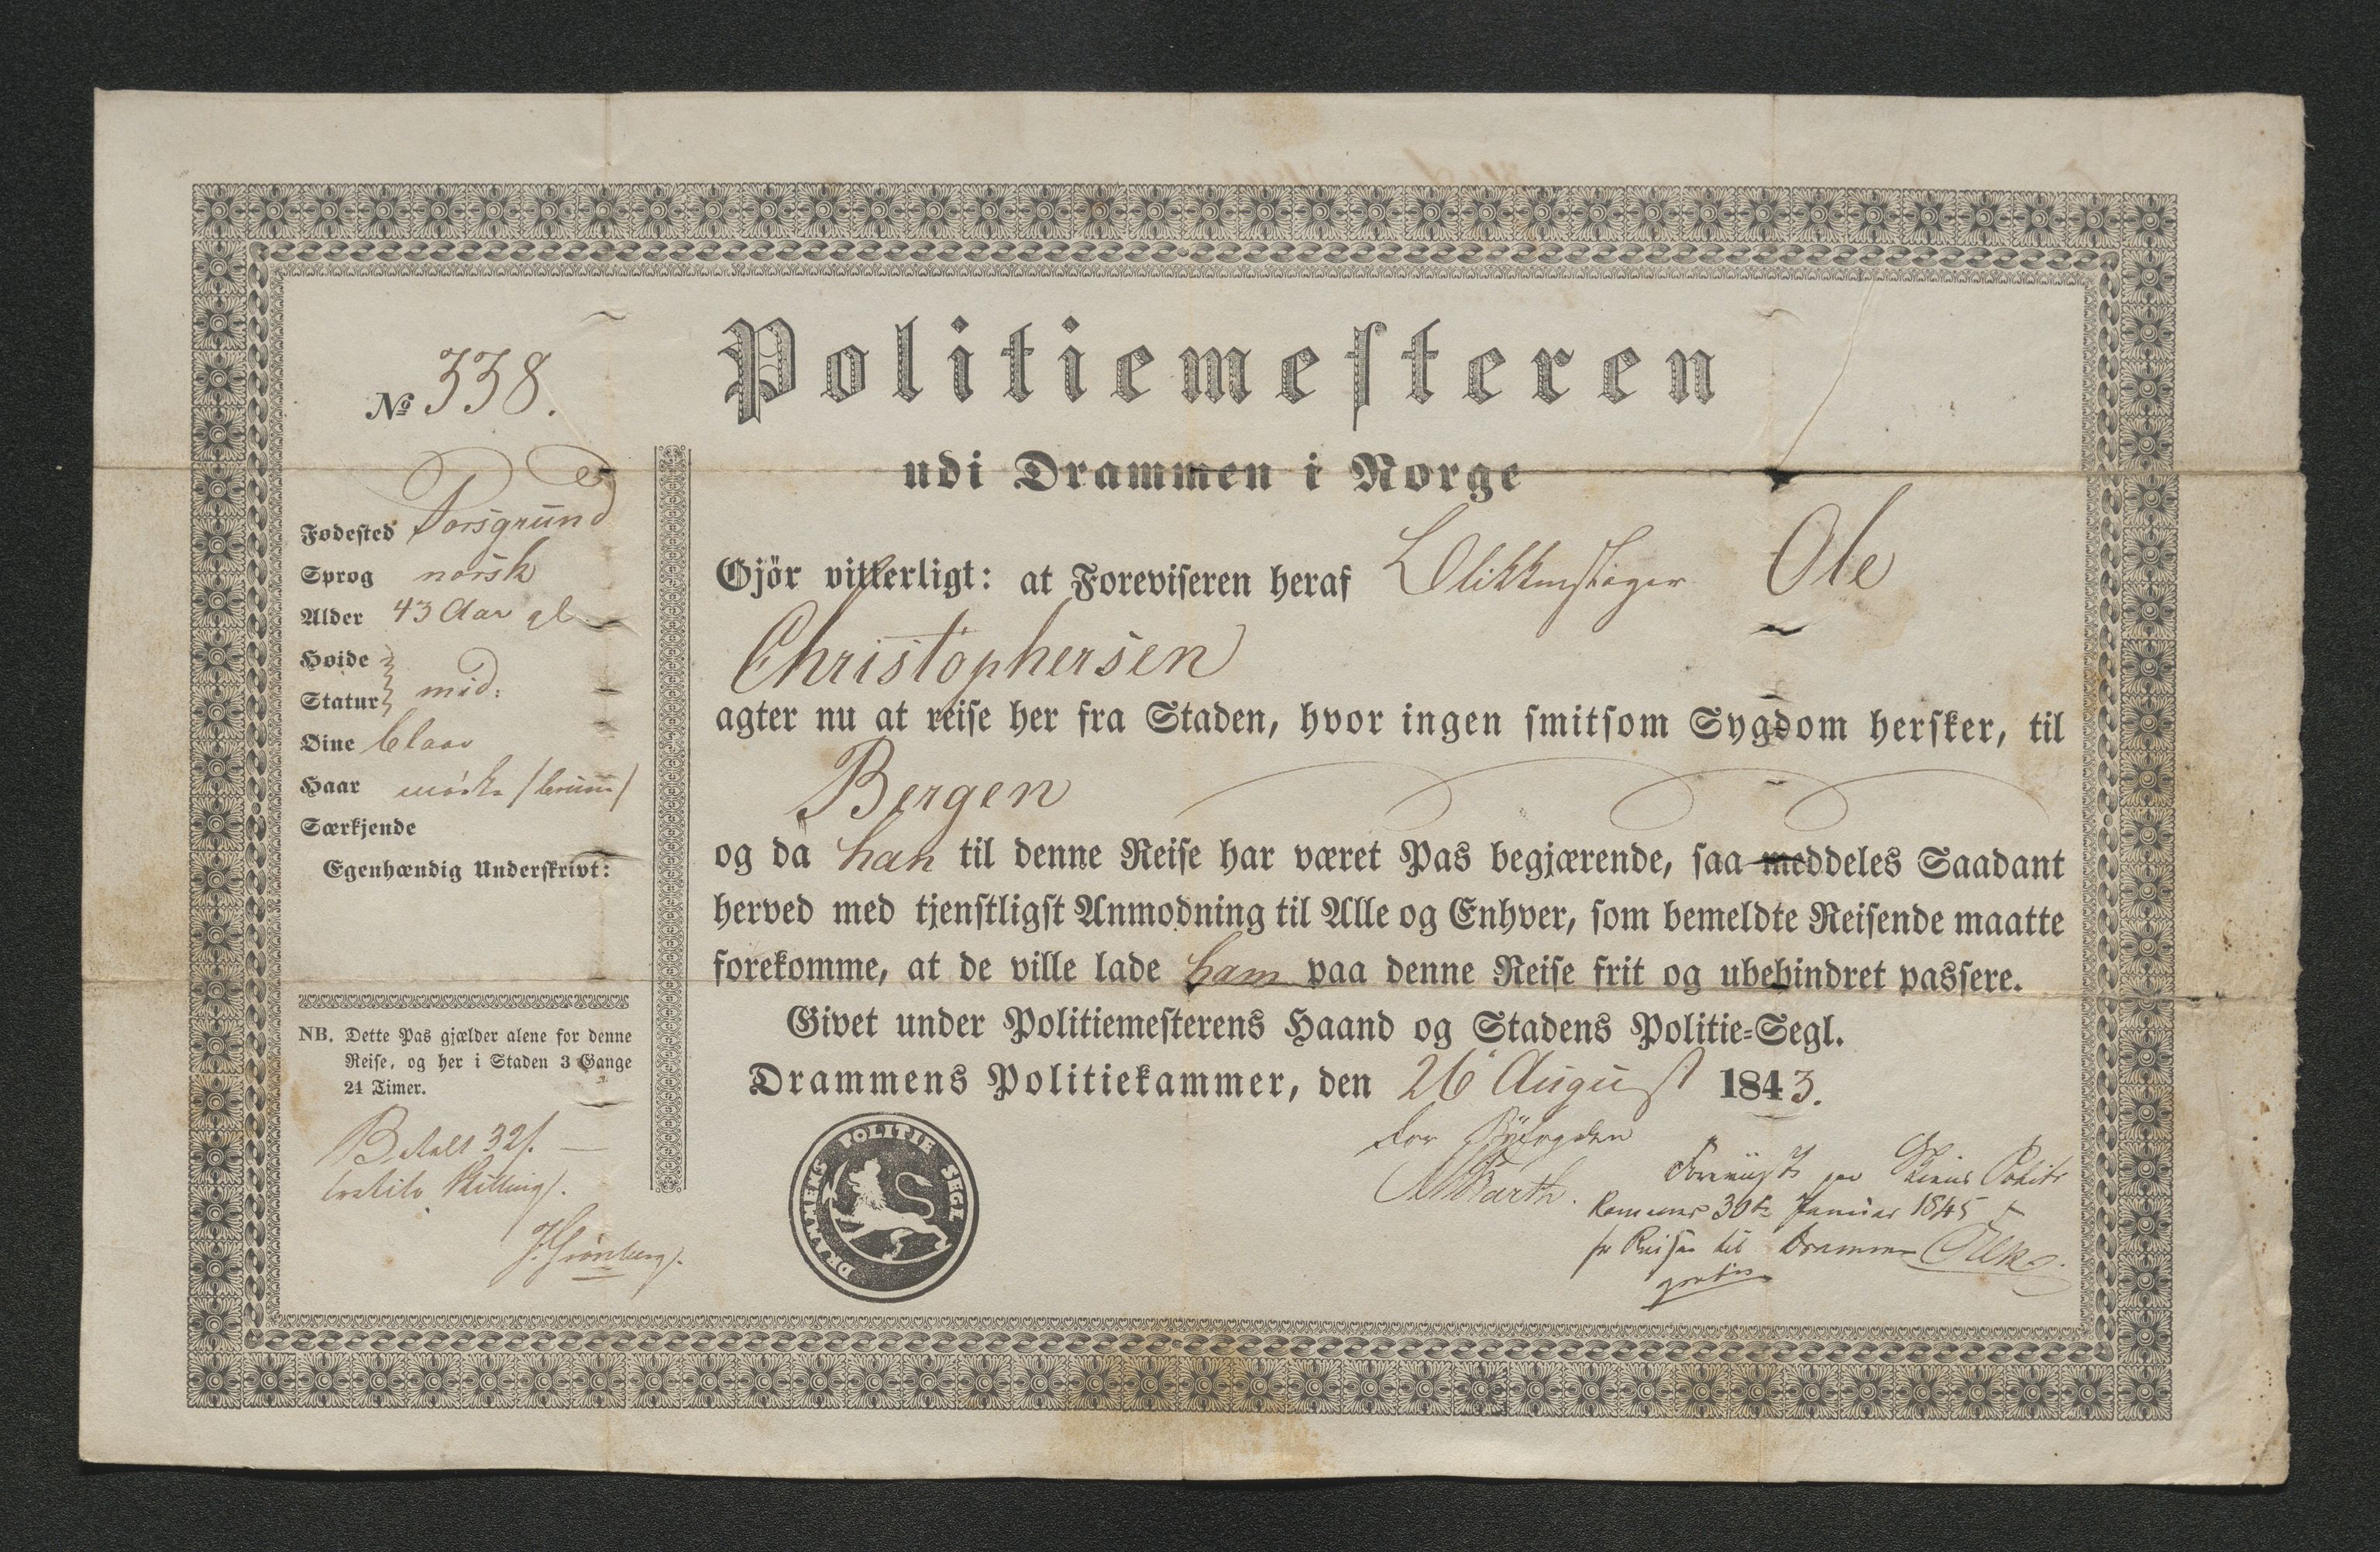 Politiemesteren
udi Drammen i Norge
No 338.
Fodested Porsgrund
Sprog norsk
Alder 43 Aar gl
Hoide
Statur mid:
Oine blaae
Haar mørke /bruun/
Særkjende
Egenhændig Underskrivt:
NB. Dette Pas gjælder alene for denne
Reise, og her i Staden 3 Gange
24 Timer.
Betalt 32 s. —
tretito Skilling s.
Gjör vitterligt: at Foreviseren heraf Ole
Christophersen
agter nu at reise her fra Staden, hvor ingen smitsom Sygdom hersker, til
Bergen
og da han til denne Reise har været Pas begjærende, saa meddeles Saadant
herved med tjenstligst Anmodning til Alle og Enhver, som bemeldte Reisende maatte
forekomme, at de ville lade ham paa denne Reise frit og ubehindret passere.
Givet under Politiemesterens Haand og Stadens Politie-Segl.
Drammens Politiekammer, den 26 August 1843.
DRAMMENS POLITIE SEGL
for Byfogden
Barth.
Foreviist paa Skiens Politi
Kammer 30te Januar 1845
for Reise til Drammen
gratis